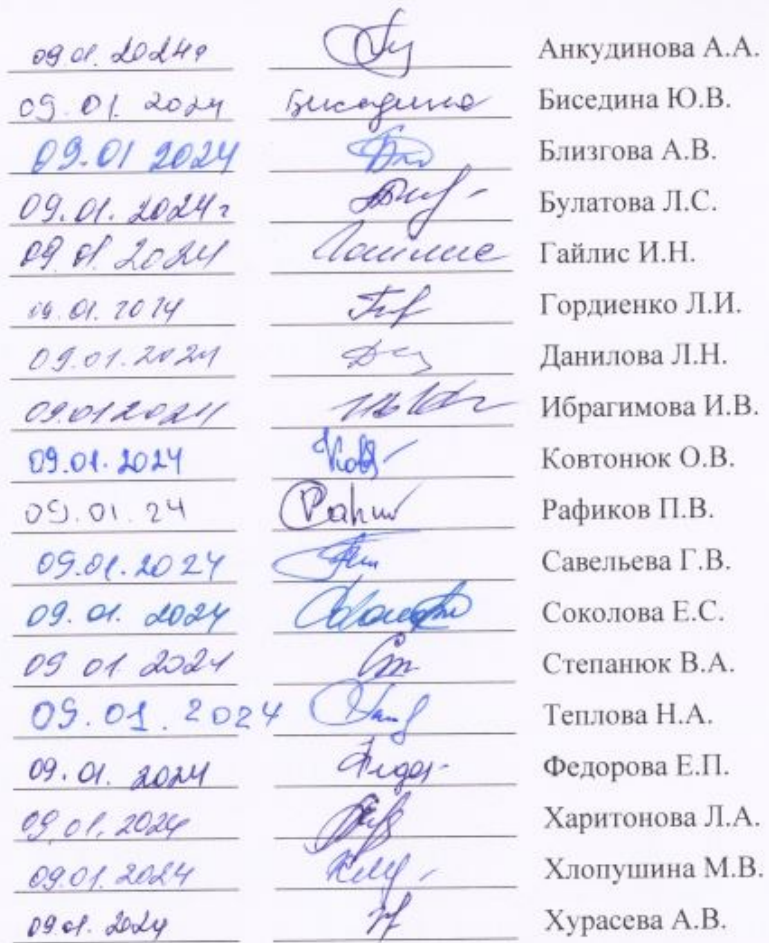 09.01.2024г Анкудинова А.А.
09.01.2024 Биседина Биседина Ю.В.
09.01 2024 Близгова А.В.
09.01.2024г Булатова Л.С.
09.01.2024 Гайлис Гайлис И.Н.
09.01.2024 Гордиенко Л.И.
09.01.2024 Данилова Л.Н.
09.01.2024 Ибрагимова И.В.
09.01.2024 Ковтонюк О.В.
09.01.24 Рафиков П.В.
09.01.2024 Савельева Г.В.
09.01.2024 Соколова Е.С.
09 01 2024 Степанюк В.А.
09.01.2024 Теплова Н.А.
09.01.2024 Федорова Е.П.
09.01.2024 Харитонова Л.А.
09.01.2024 Хлопушина М.В.
09.01.2024 Хурасева А.В.